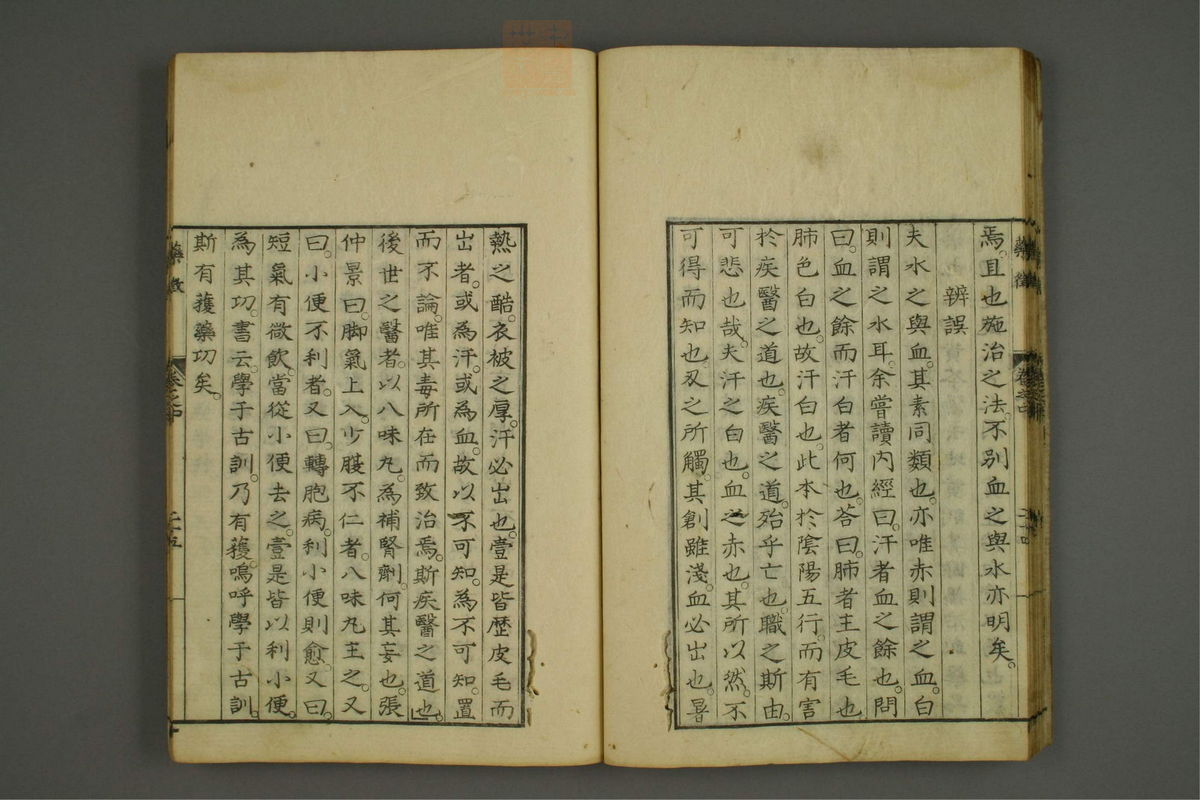 焉。且也施治之法。不別血之與水亦明矣。
辨誤
夫水之與血。其素同類也。亦唯赤則謂之血。白
則謂之水耳。余嘗讀内經曰。汗者血之餘也。問
曰。血之餘而汗白者何也。荅曰。肺者主皮毛也。
肺色白也。故汗白也。此本於陰陽五行。而有害
於疾醫之道也。疾醫之道。殆乎亡也。職之斯由。
可悲也哉。夫汗之白也。血之赤也。其所以然。不
可得而知也。刄之所觸。其創雖淺。血必出也。暑
藥徴
卷之中
二十四
熱之酷。衣被之厚。汗必出也。壹是皆歴皮毛而
出者。或為汗。或為血。故以不可知。為不可知。置
而不論。唯其毒所在而致治焉。斯疾醫之道也。
後世之醫者。以八味丸。為補腎劑。何其妄也。張
仲景曰。脚氣上入。少腹不仁者。八味丸主之。又
曰。小便不利者。又曰。轉胞病。利小便則愈。又曰。
短氣有微飲當從小便去之。壹是皆以利小便。
為其功。書云。學于古訓。乃有獲。嗚呼學于古訓。
斯有獲藥功矣。
藥徴
卷之中
二十五